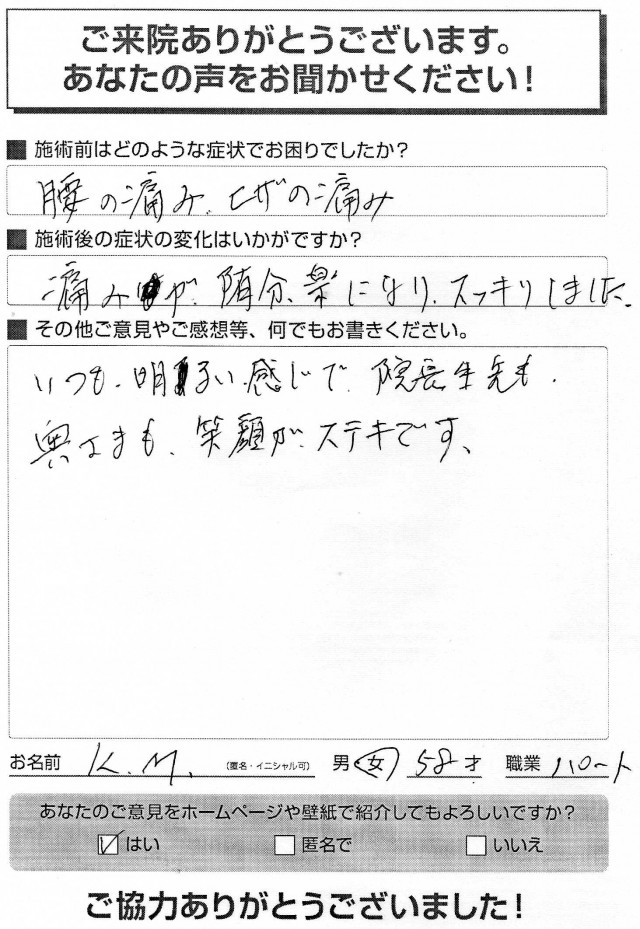 ご来院ありがとうございます。
あなたの声をお聞かせください！
■ 施術前はどのような症状でお困りでしたか？
腰の痛み、ヒザの痛み
■ 施術後の症状の変化はいかがですか？
痛みが、随分、楽になり、スッキリしました。
■ その他ご意見やご感想等、何でもお書きください。
いつも、明るい感じで、院長先生も、
奥さまも、笑顔が、ステキです、
お名前 K.M. （匿名・イニシャル可） 男・女 58才 職業 パート
あなたのご意見をホームページや壁紙で紹介してもよろしいですか？
はい 匿名で いいえ
ご協力ありがとうございました！